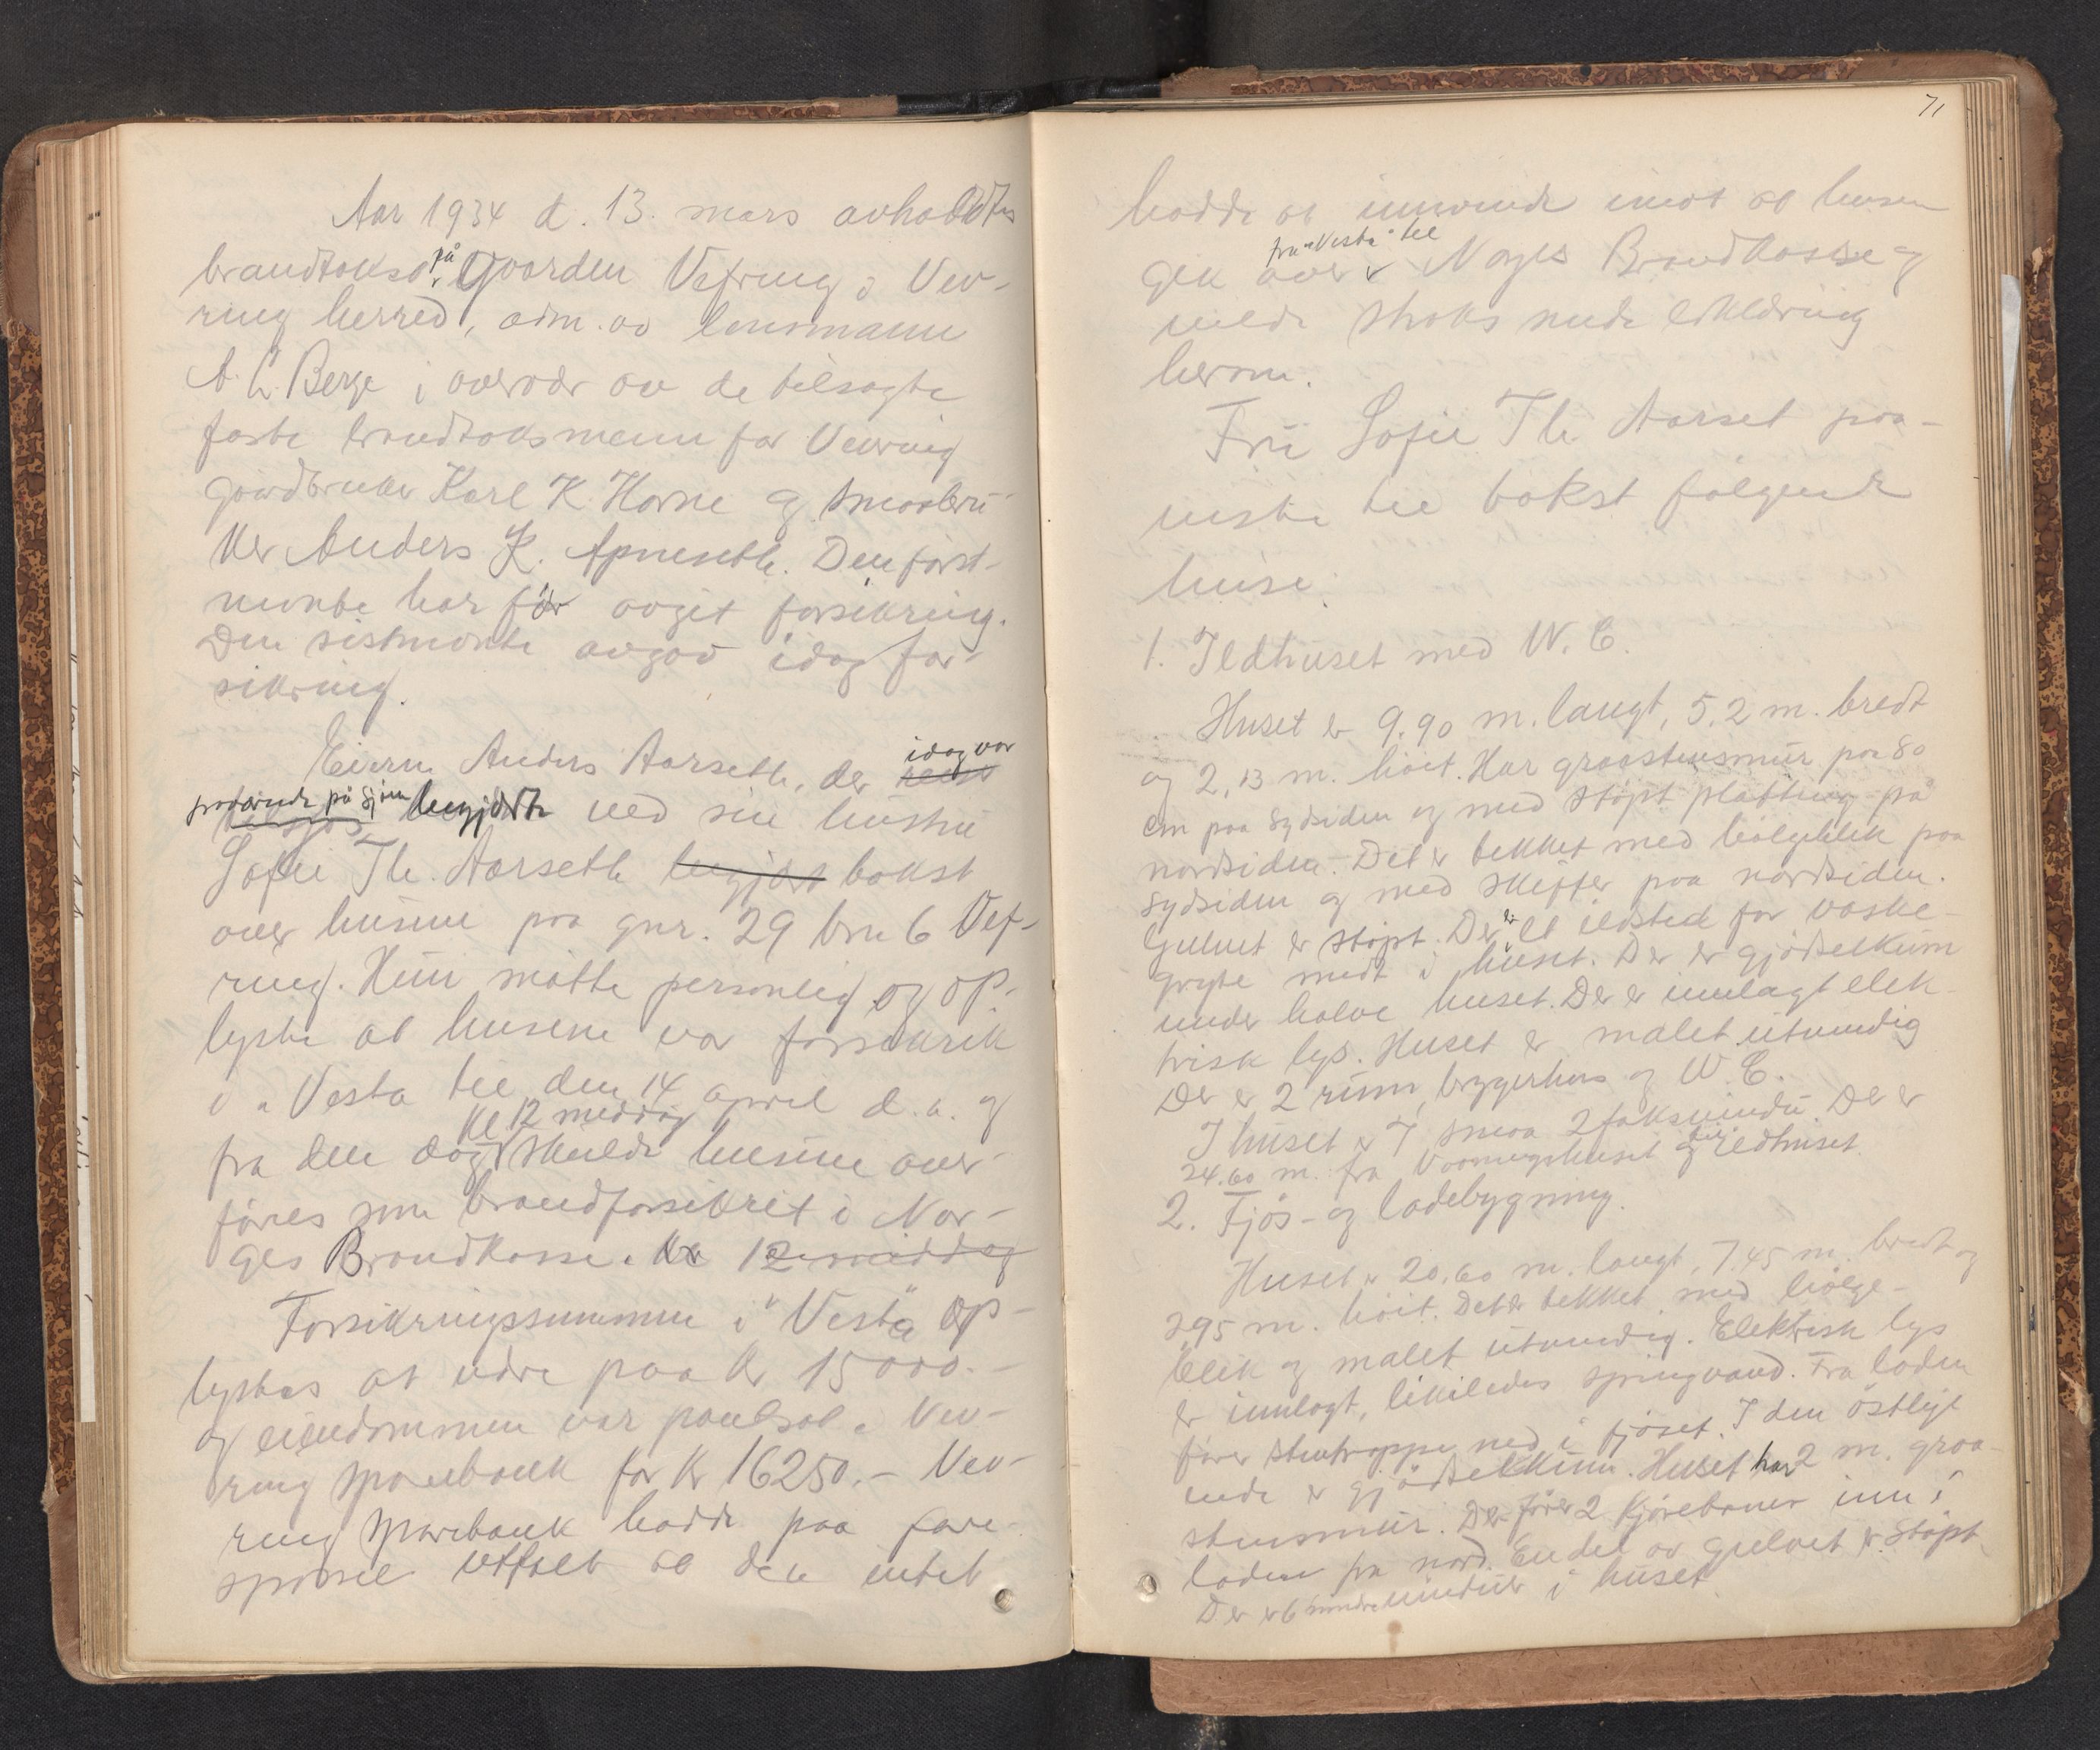 Aar 1934 d. 13. mars avholdtes
brandtakst på Gaarden Vefring i Vev-
ring herred, adm. av lensmann
A. L. Berge i overvær av de tilsagte
faste brandtaksmenn for Vevring
gaardbruker Karl K. Horne og smaabru-
ker Anders K. Apneseth. Den først-
nevnte har før avgit forsikring.
Den sistnevnte avgav idag for-
sikring.
Eieren Anders Aarseth, der idag var
paa sjøen begjærte ved sin hustru
Sofie Th. Aarseth begjært takst
over husene paa gnr. 29 brn 6 Vef-
ring. Hun møtte personlig og op-
lyste at husene var forsikrik
i "Vesta til den 14 april d. a. og
fra den dag kl 12 middag skulde husene over-
føres som brandforsikret i Nor-
ges Brandkasse. kl 12 middag
Forsikringssummen i "Vesta" op-
lystes at være paa kr 15000.-
og eiendommen var pantsat i Vev-
ring sparebank for kr 16250.- Vev-
ring sparebank hadde paa fore-
spørsel uttalt at den intet
71
hadde at innvende imot at husene
gik over fra "Vesta" til Norges Brandkasse og
vilde straks sende erklæring
herom.
Fru Sofie Th. Aarset paa-
viste til takst følgende
huse:
1. Ildhuset med W. C.
Huset er 9.90 m. langt, 5.2 m. bredt
og 2,13 m. høit. Har graastensmur paa 80
cm paa sydsiden og med støpt platting på
nordsiden. Det er tekket med bølgeblik paa
sydsiden og med skifer paa nordsiden.
Gulvet er støpt. Der er et ildsted for vaske
gryte midt i huset. Der er gjødselkum
under halve huset. Der er innlagt elek-
trisk lys. Huset er malet utvendig
Der er 2 rum, bryggerhus og W. C.
I huset er 7 smaa 2 faksvindu. Der er
24.60 m. fra Vaaningshuset og til ildhuset.
2. Fjøs- og ladebygning.
Huset er 20,60 m. langt, 7.45 m. bredt og
295 m. høit. Det er tekket med bølge-
blik og malet utvendig. Elektrisk lys
er innlagt, likeledes springvand. Fra laden
fører stentrappe ned i fjøset. I den østlige
ende er gjødselkum. Huset har 2 m. graa-
stensmur. Der fører 2 kjørebaner inn i
laden fra nord. Endel av gulvet er støpt.
Der er 6 mindre vinduer i huset.